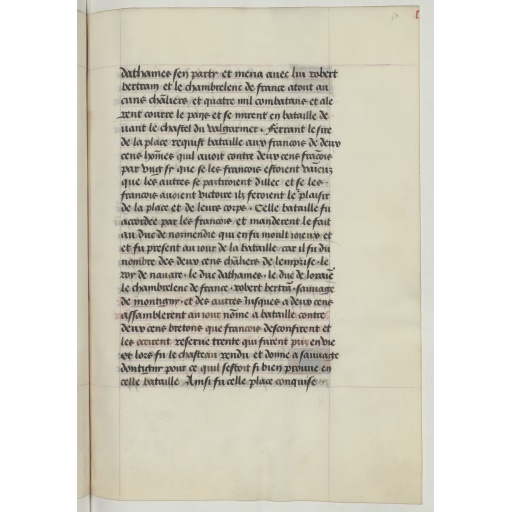 dathames sen party et mena auec lui robert
bertram et le chambrelenc de france atout au
cuns chãliers et quatre mil combatans et ale
rent courre le pays et se mirent en bataille de
uant le chastel du valgarnier. Ferrant le sire
de la place requist bataille aux francois de deux
cens hom̃es quil auoit contre deux cens frãcois
par vng sy que se les francois estoient vaĩcuz
que les autres se partiroient dillec et se les
francois auoient victoire ilz feroient le plaisir
de la place et de leurs corps. Celle bataille fu
accordee par les francois et manderent le fait
au duc de normendie qui en fu moult ioieux et
et fu present au iour de la bataille car il fu du
nombre des deux cens chãliers de lemprise. le
roy de nauare. le duc dathames. le duc de loraiñe
le chambrelenc de france. robert bertrã. sauuage
de montigny. et des autres iusques a deux cens
assamblerent au iour nõme a bataille contre
deux cens bretons que francois desconfirent et
les occirent reserue trente qui furent pris en vie
et lors fu le chasteau rendu et donne a sauuage
dontigny pour ce quil sestoit si bien prouue en
celle bataille Ainsi fu celle place conquise